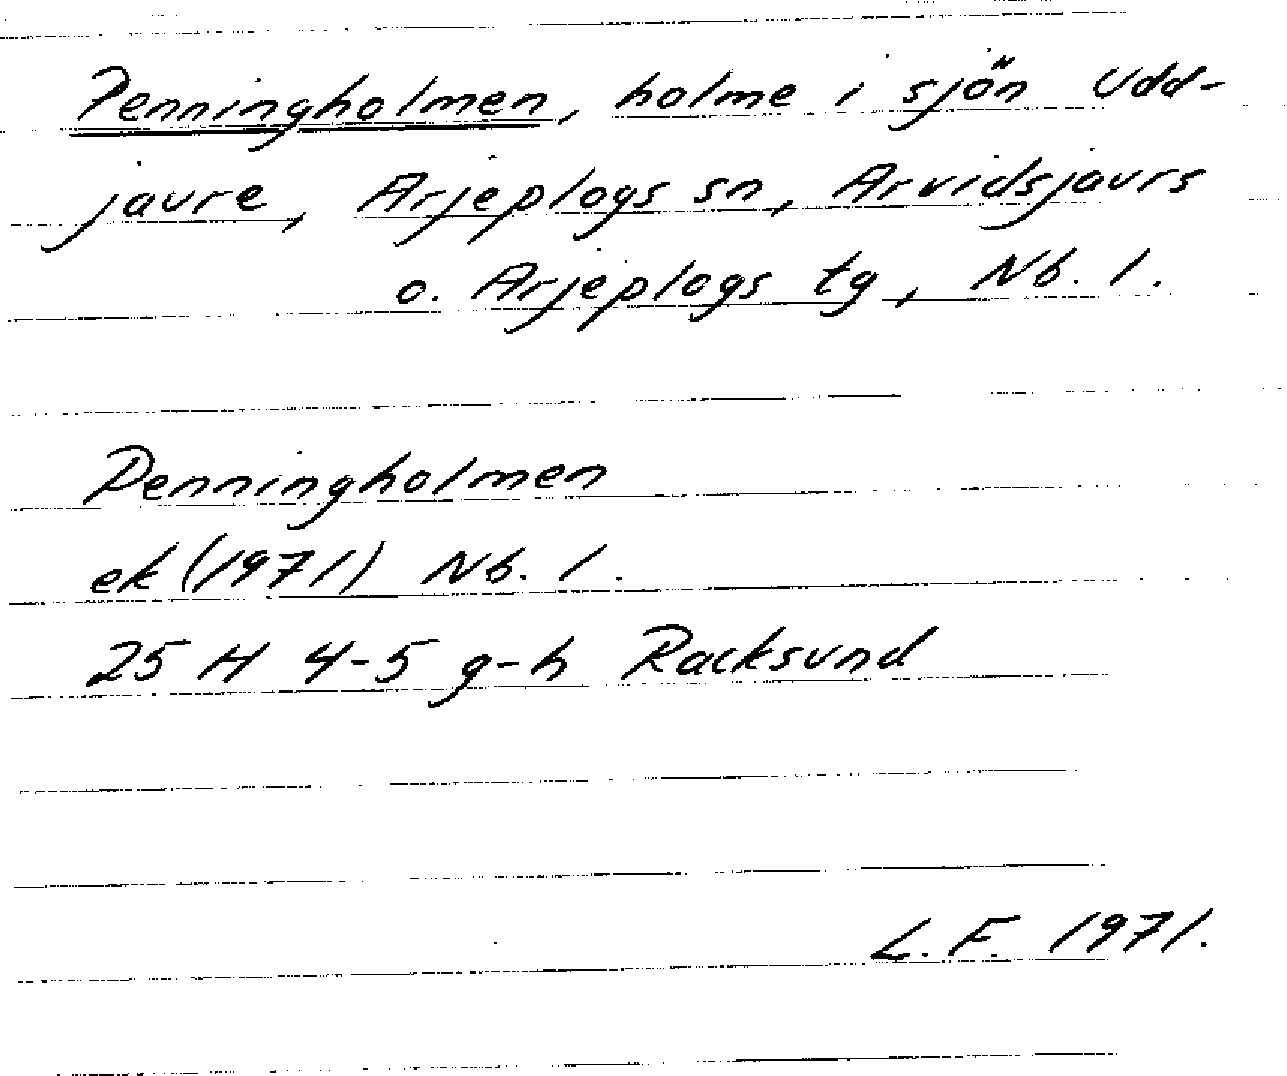 Penningholmen, holme i sjön Udd-
jaure, Arjeplogs sn, Arvidsjaurs
o. Arjeplogs tg, Nb. l.
Penningholmen
ek (1971) Nb. l.
25 H 4-5 g-h Racksund
L. F. 1971.